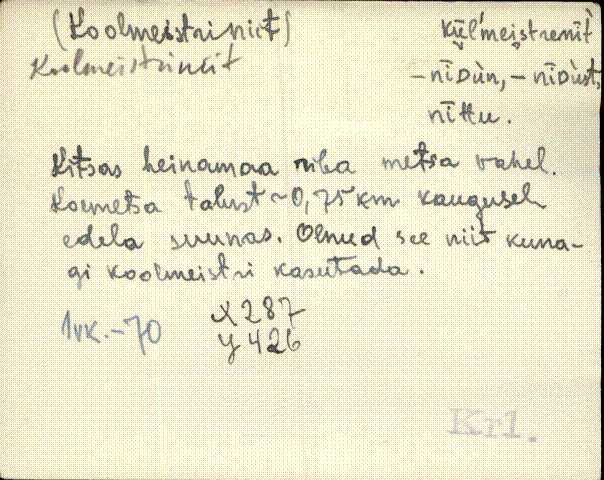 (Koolmeistriniit) kuĺmeistrenīt
Koolmeistriniit
– nīDùn, – nīDùst,
nīttu.
Kitsas heinamaa riba metsa vahel.
Loometsa talust ~0,75 km kaugusel
edela suunas. Olnud see niit kuna-
gi koolmeistri kasutada.
1vk. – 70
X 287
Y 426
Krl.